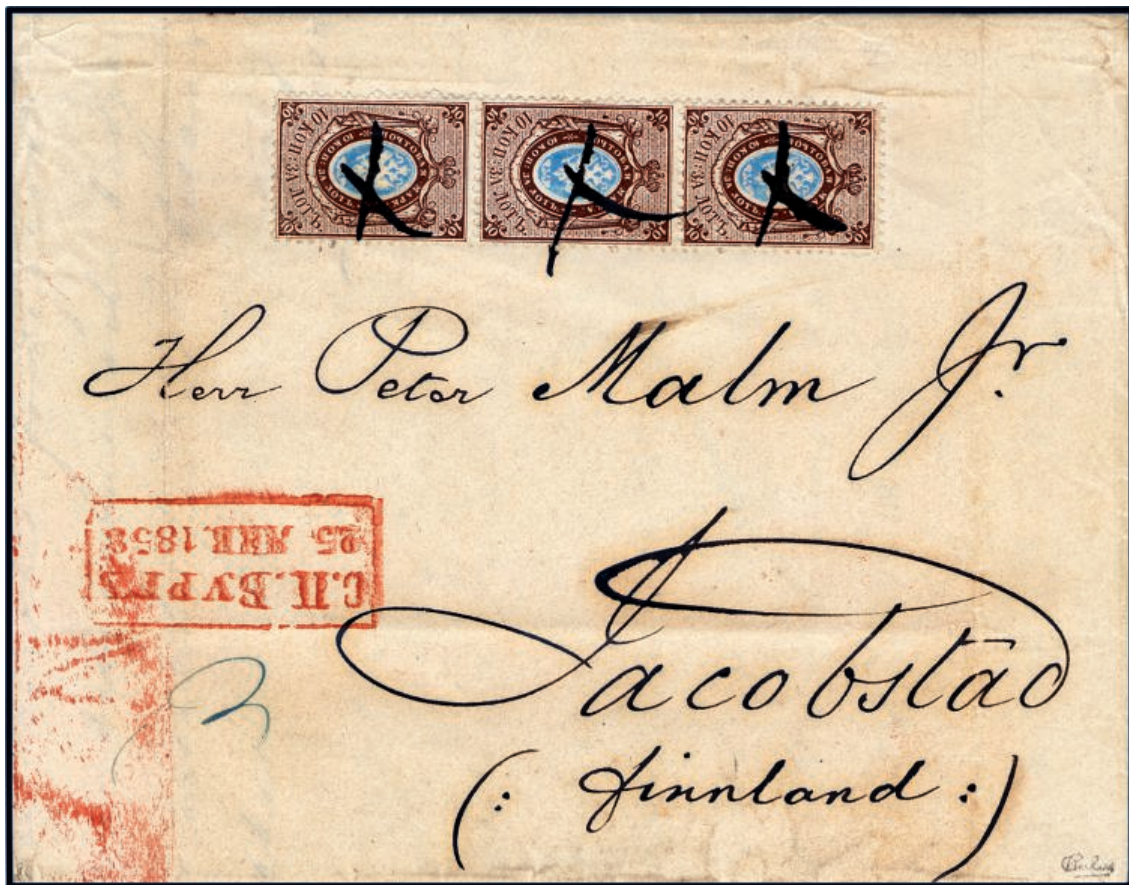 10 КОП. ЗА ЛОТЪ
10 КОП. ЗА ЛОТЪ
10 КОП. ЗА ЛОТЪ
Herr Peter Malm Jr.
С.П.БУРГЪ
25 ЯНВ.1858
Jacobstad
(: Finnland :)